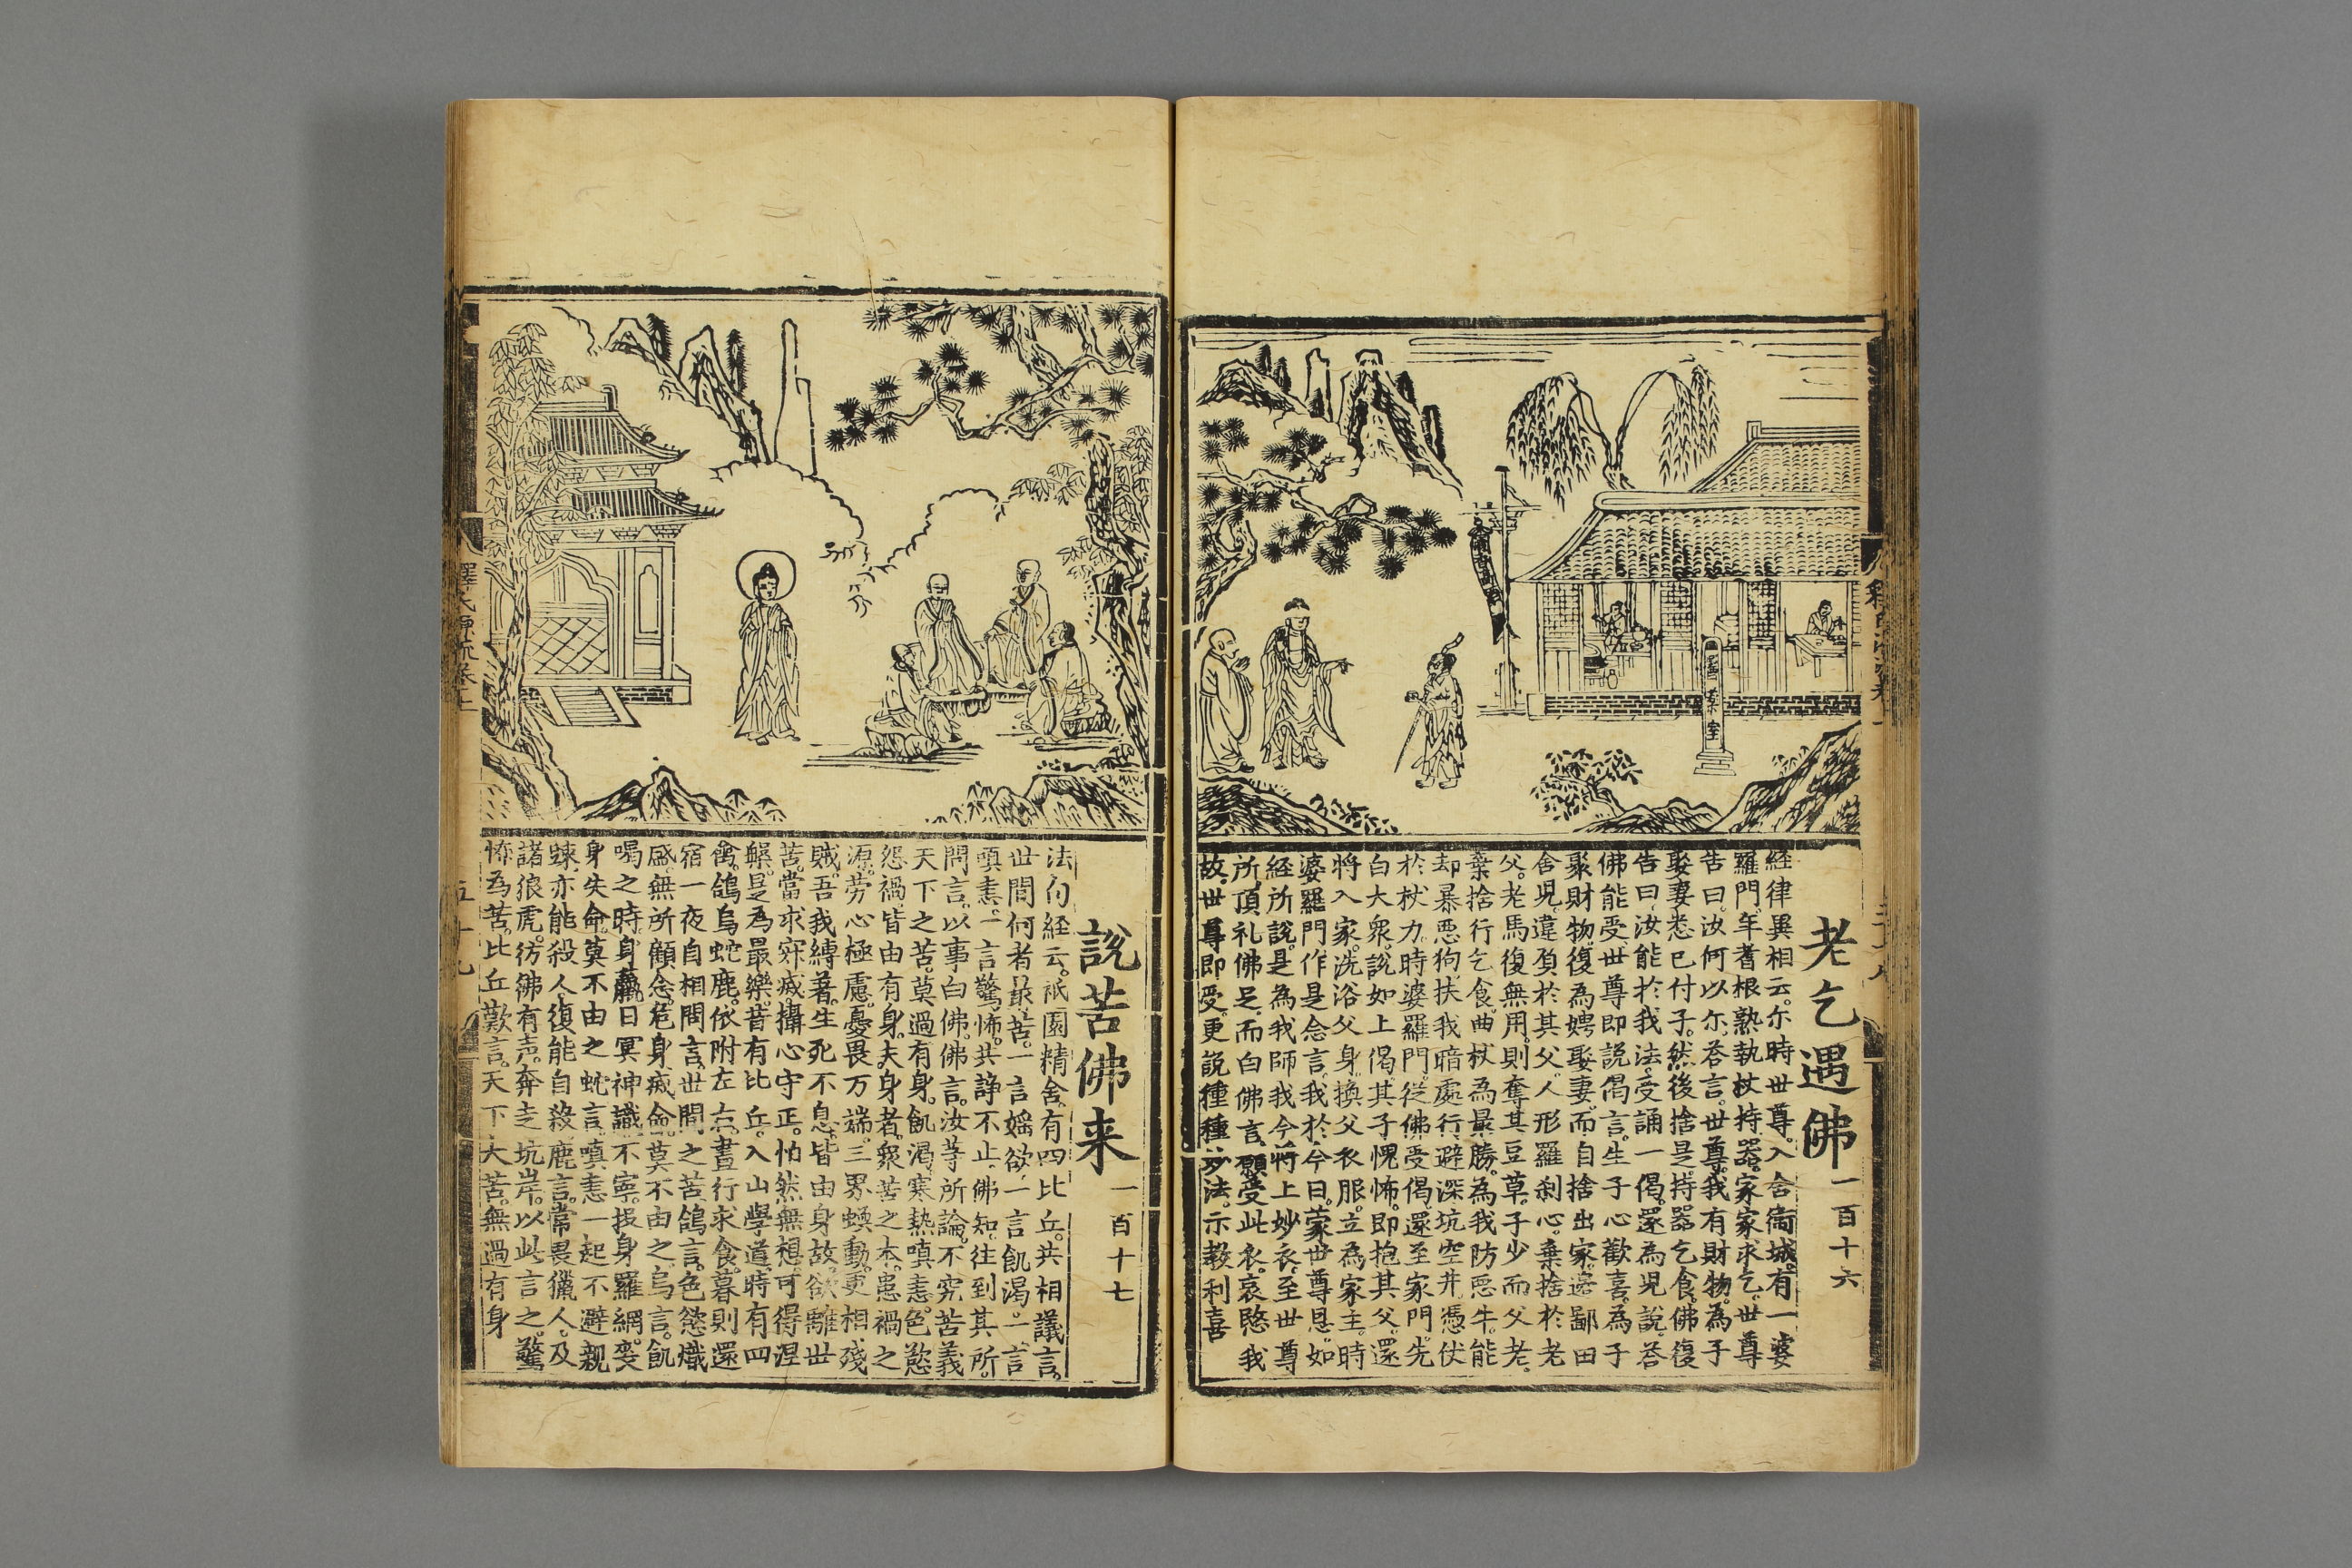 老乞遇佛一百十六
経律異相云。尔時世尊。入舍衛城。有一婆
羅門。年耆根熟執杖持器。家家求乞。世尊
告曰。汝何以尔。荅言。世尊。我有財物。為子
娶妻。悉已付子。然後捨是。持器乞食。佛復
告曰。汝能於我法。受誦一偈。還為児說。荅
佛能受。世尊即說偈言。生子心歡喜。為子
聚財物。復為娉娶妻。而自捨出家。邊鄙田
舍児。違負於其父。人形羅剎心。棄捨於老
父。老馬復無用。則奪其豆草。子少而父老。
棄捨行乞食。曲杖為最勝。為我防悪牛。能
却暴悪狗。扶我暗處行。避深坑空井。憑伏
於杖力。時婆羅門。従佛受偈。還至家門。先
白大衆。說如上偈。其子愧怖。即抱其父。還
将入家。洗浴父身。換父衣服。立為家主。時
婆羅門作是念言。我於今日。蒙世尊恩。如
経所說。是為我師。我今将上妙衣。至世尊
所。頂礼佛足。而白佛言。願受此衣。哀愍我
故。世尊即受。更說種種妙法。示教利喜
說苦佛来一百十七
法句経云。祇園精舍。有四比丘。共相議言。
世間何者最苦。一言婬欲。一言飢渴。一言
嗔恚。一言驚怖。共諍不止。佛知。往到其所。
問言。以事白佛。佛言。汝等所論。不究苦義
天下之苦。莫過有身。飢渴寒熱嗔恚。色慾
怨禍。皆由有身。夫身者。衆苦之本。患禍之
源。劳心極慮。憂畏万端。三界蝡動。更相殘
賊。吾我縛著。生死不息。皆由身故。欲離世
苦。當求寂滅。攝心守正。怕然無想。可得涅
槃。是為最樂。昔有比丘。入山學道。時有四
禽。鴿烏蛇鹿。依附左右。晝行求食。暮則還
宿。一夜自相問言。世間之苦。鴿言。色慾熾
盛。無所顧念。危身滅命。莫不由之。烏言。飢
喝之時。身羸目冥。神識不寧。投身羅網。
身失命。莫不由之。蛇言。嗔恚一起。不避親
踈。亦能殺人。復能自殺。鹿言。常畏獵人。及
諸狼虎。彷佛有声。奔走坑岸。以此言之。驚
怖為苦。比丘歎言。天下大苦。無過有身
釋氏源流卷上
五十九